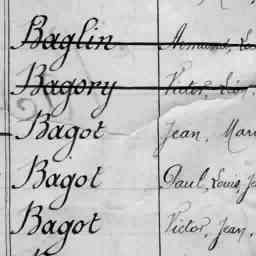 Baglin Armand, Lou
Bagory Victor, Léon,
Bagot Jean, Mari
Bagot Paul, Louis, Je
Bagot Victor, Jean,